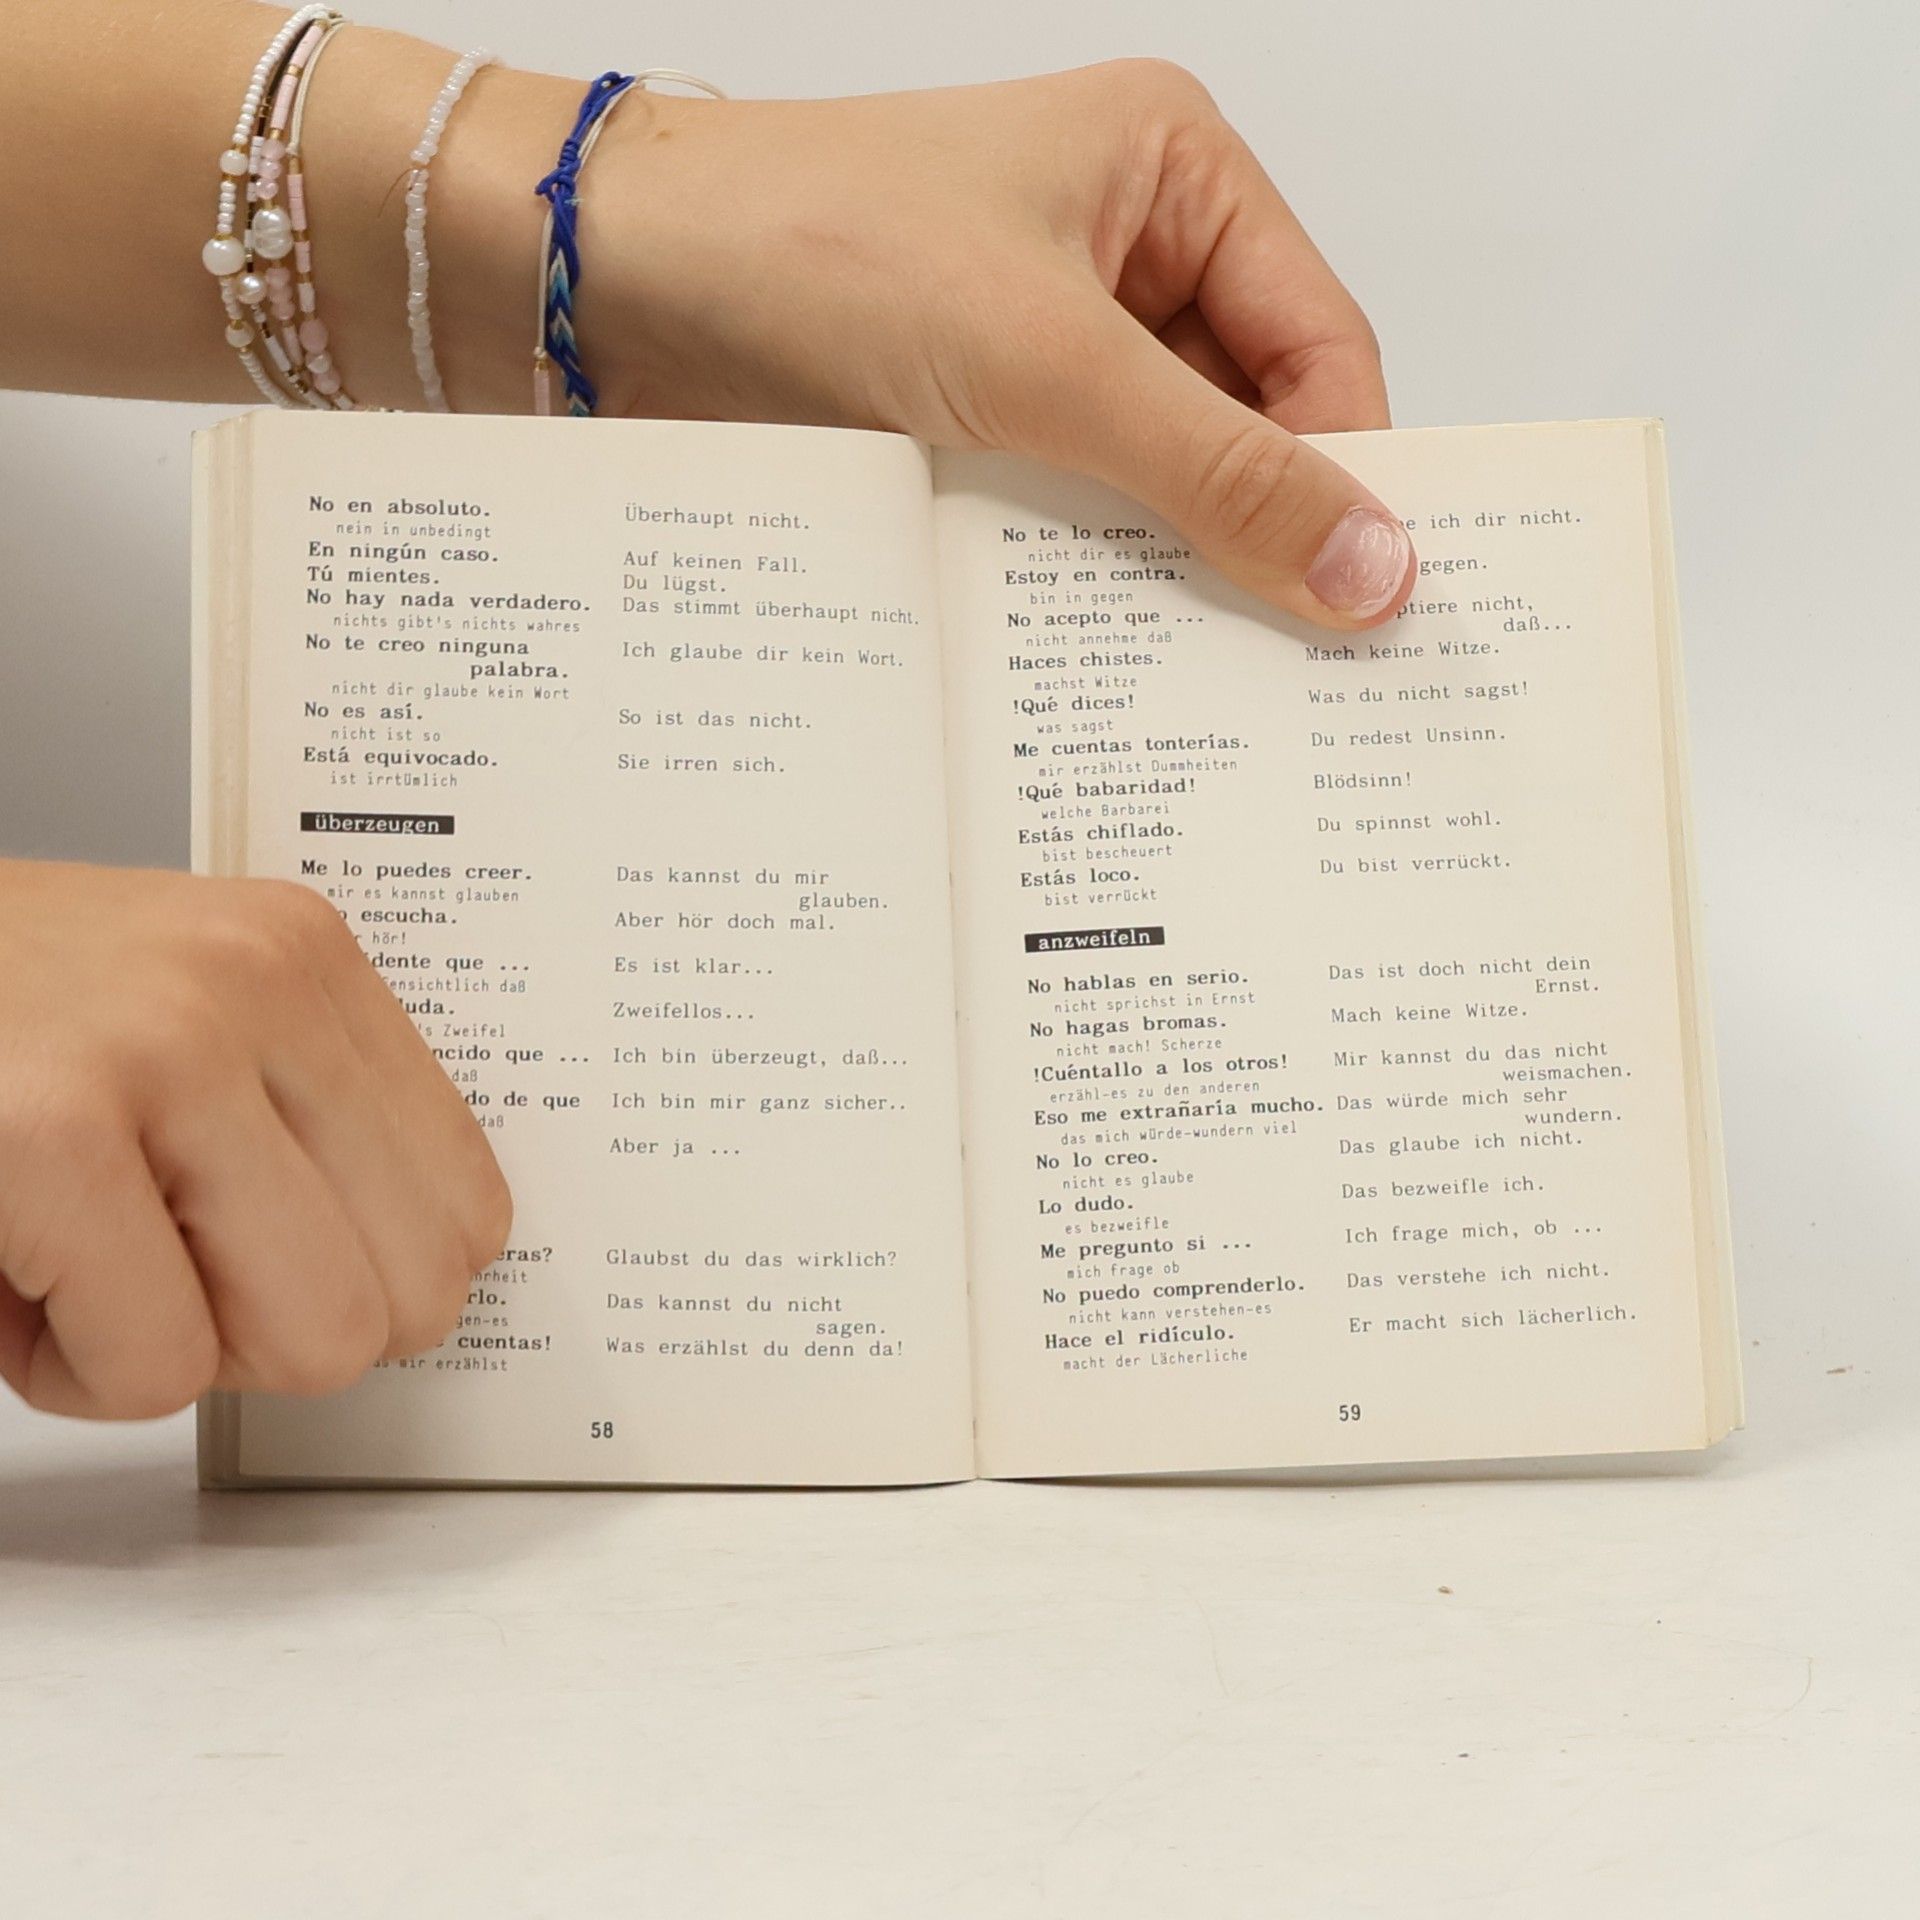 No en absoluto. Überhaupt nicht.
nein in unbedingt
En ningún caso. Auf keinen Fall.
Tú mientes. Du lügst.
No hay nada verdadero. Das stimmt überhaupt nicht.
nichts gibt's nichts wahres
No te creo ninguna Ich glaube dir kein Wort.
palabra.
nicht dir glaube kein Wort
No es así. So ist das nicht.
nicht ist so
Está equivocado. Sie irren sich.
ist irrtümlich
überzeugen
Me lo puedes creer. Das kannst du mir
mir es kannst glauben glauben.
escucha. Aber hör doch mal.
hör!
que ... Es ist klar...
daß
Zweifellos...
's Zweifel
que ... Ich bin überzeugt, daß...
daß
de que Ich bin mir ganz sicher..
daß
Aber ja ...
Glaubst du das wirklich?
Das kannst du nicht
sagen.
cuentas! Was erzählst du denn da!
mir erzählst
58
No te lo creo. ich dir nicht.
nicht dir es glaube
Estoy en contra. gegen.
bin in gegen
No acepto que ... nicht,
nicht annehme daß daß...
Haces chistes. Mach keine Witze.
machst Witze
!Qué dices! Was du nicht sagst!
was sagst
Me cuentas tonterías. Du redest Unsinn.
mir erzählst Dummheiten
!Qué babaridad! Blödsinn!
welche Barbarei
Estás chiflado. Du spinnst wohl.
bist bescheuert
Estás loco. Du bist verrückt.
bist verrückt
anzweifeln
No hablas en serio. Das ist doch nicht dein
nicht sprichst in Ernst Ernst.
No hagas bromas. Mach keine Witze.
nicht mach! Scherze
!Cuéntallo a los otros! Mir kannst du das nicht
erzähl-es zu den anderen weismachen.
Eso me extrañaría mucho. Das würde mich sehr
das mich würde-wundern viel wundern.
No lo creo. Das glaube ich nicht.
nicht es glaube
Lo dudo. Das bezweifle ich.
es bezweifle
Me pregunto si ... Ich frage mich, ob ...
mich frage ob
No puedo comprenderlo. Das verstehe ich nicht.
nicht kann verstehen-es
Hace el ridículo. Er macht sich lächerlich.
macht der Lächerliche
59